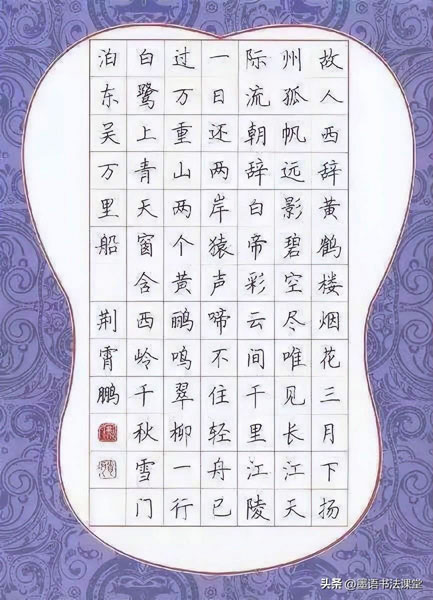 故人西辞黄鹤楼烟花三月下扬
州孤帆远影碧空尽唯见长江天
际流朝辞白帝彩云间千里江陵
一日还两岸猿声啼不住轻舟已
过万重山两个黄鹂鸣翠柳一行
白鹭上青天窗含西岭千秋雪门
泊东吴万里船 荆霄鹏
头条 @墨语书法课堂